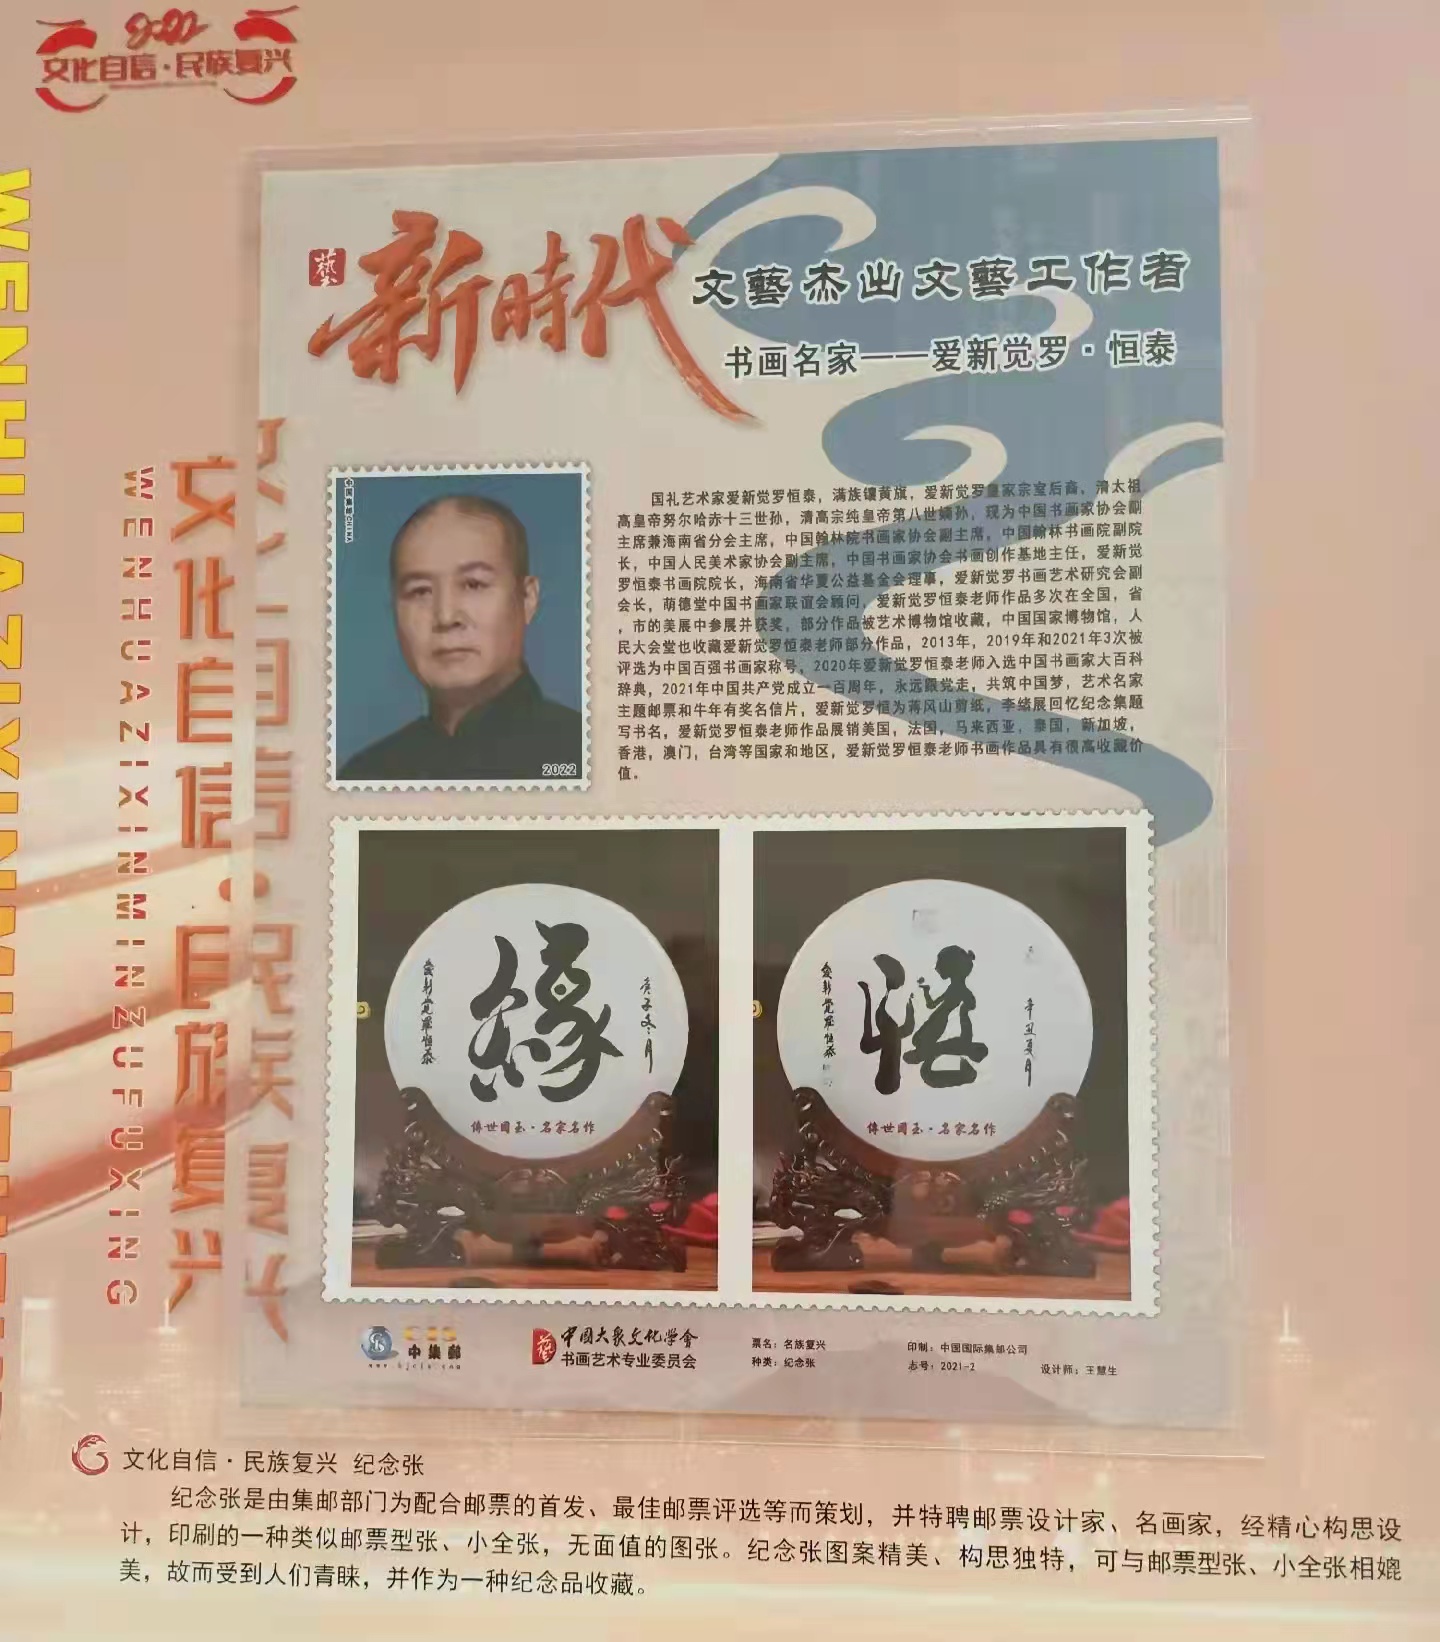 2022
文化自信·民族复兴
WENHUAZIXINMINZUFUXING
文化自信·民族复兴
藝
新時代
文藝杰出文藝工作者
书画名家——爱新觉罗·恒泰
2022
国礼艺术家爱新觉罗恒泰，满族镶黄旗，爱新觉罗皇家宗室后裔，清太祖
高皇帝努尔哈赤十三世孙，清高宗纯皇帝第八世嫡孙，现为中国书画家协会副
主席兼海南省分会主席，中国翰林院书画家协会副主席，中国翰林书画院副院
长，中国人民美术家协会副主席，中国书画家协会书画创作基地主任，爱新觉
罗恒泰书画院院长，海南省华夏公益基金会理事，爱新觉罗书画艺术研究会副
会长，萌德堂中国书画家联谊会顾问，爱新觉罗恒泰老师作品多次在全国，省
，市的美展中参展并获奖，部分作品被艺术博物馆收藏，中国国家博物馆，人
民大会堂也收藏爱新觉罗恒泰老师部分作品，2013年，2019年和2021年3次被
评选为中国百强书画家称号，2020年爱新觉罗恒泰老师入选中国书画家大百科
辞典，2021年中国共产党成立一百周年，永远跟党走，共筑中国梦，艺术名家
主题邮票和牛年有奖名信片，爱新觉罗恒为蒋风山剪纸，李绪展回忆纪念集题
写书名，爱新觉罗恒泰老师作品展销美国，法国，马来西亚，泰国，新加坡，
香港，澳门，台湾等国家和地区，爱新觉罗恒泰老师书画作品具有很高收藏价
值。
缘
庚子冬月
爱新觉罗恒泰
传世国玉·名家名作
悟
辛丑夏月
爱新觉罗恒泰
传世国玉·名家名作
中集邮
中国大众文化学会
书画艺术专业委员会
票名：名族复兴
种类：纪念张
印制：中国国际集邮公司
志号：2021-2
设计师：王慧生
文化自信·民族复兴 纪念张
纪念张是由集邮部门为配合邮票的首发、最佳邮票评选等而策划，并特聘邮票设计家、名画家，经精心构思设
计，印刷的一种类似邮票型张、小全张，无面值的图张。纪念张图案精美、构思独特，可与邮票型张、小全张相媲
美，故而受到人们青睐，并作为一种纪念品收藏。